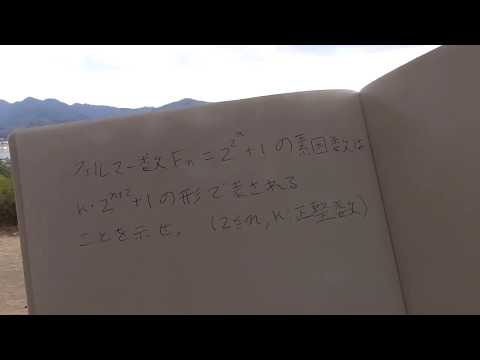 フェルマー数 Fn = 2^2^n + 1 の素因数は
k・2^n+2 + 1 の形で表される
ことを示せ。 (2≦n, k:正整数)